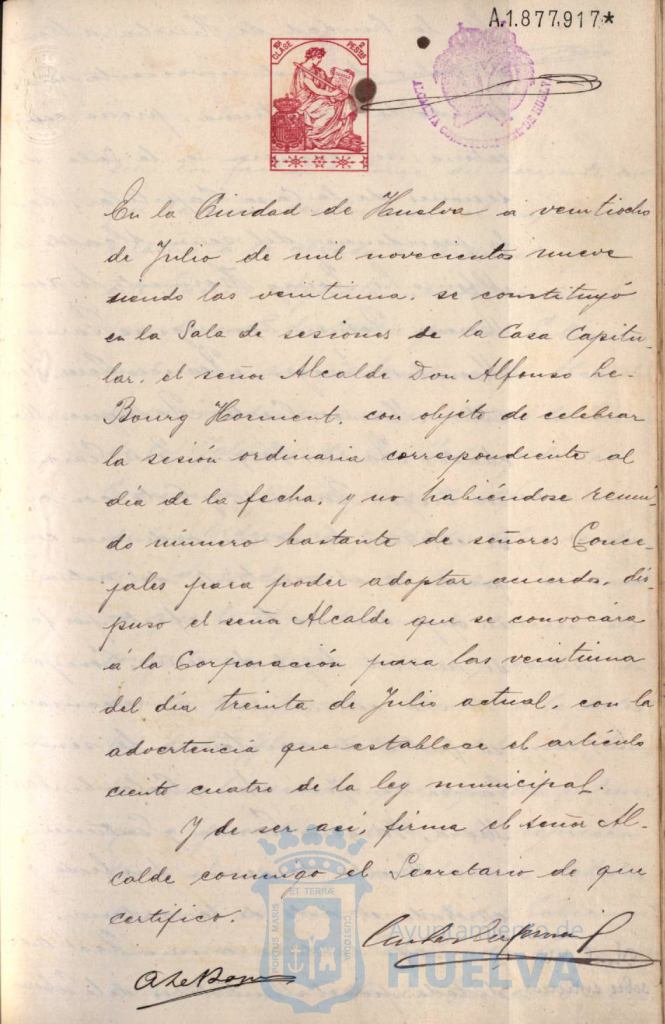 A.1.877.917*
10ª CLASE 2 PESETAS
ALCALDIA CONSTITUCIONAL DE HUELVA
En la Ciudad de Huelva a veintiocho
de Julio de mil novecientos nueve
siendo las veintiuna, se constituyó
en la Sala de sesiones de la Casa Capitu-
lar, el señor Alcalde Don Alfonso Le-
Bourg Horment, con objeto de celebrar
la sesión ordinaria correspondiente al
día de la fecha, y no habiéndose reuni-
do número bastante de señores Conce-
jales para poder adoptar acuerdos, dis-
puso el señor Alcalde que se convocára
á la Corporación para las veintiuna
del día treinta de Julio actual, con la
advertencia que establece el artículo
ciento cuatro de la ley municipal.
Y de ser así, firma el señor Al-
calde conmigo el Secretario de que
certifico.
A Le Bourg
PORTUS MARIS ET TERRÆ CUSTODIA
Ayuntamiento de
HUELVA